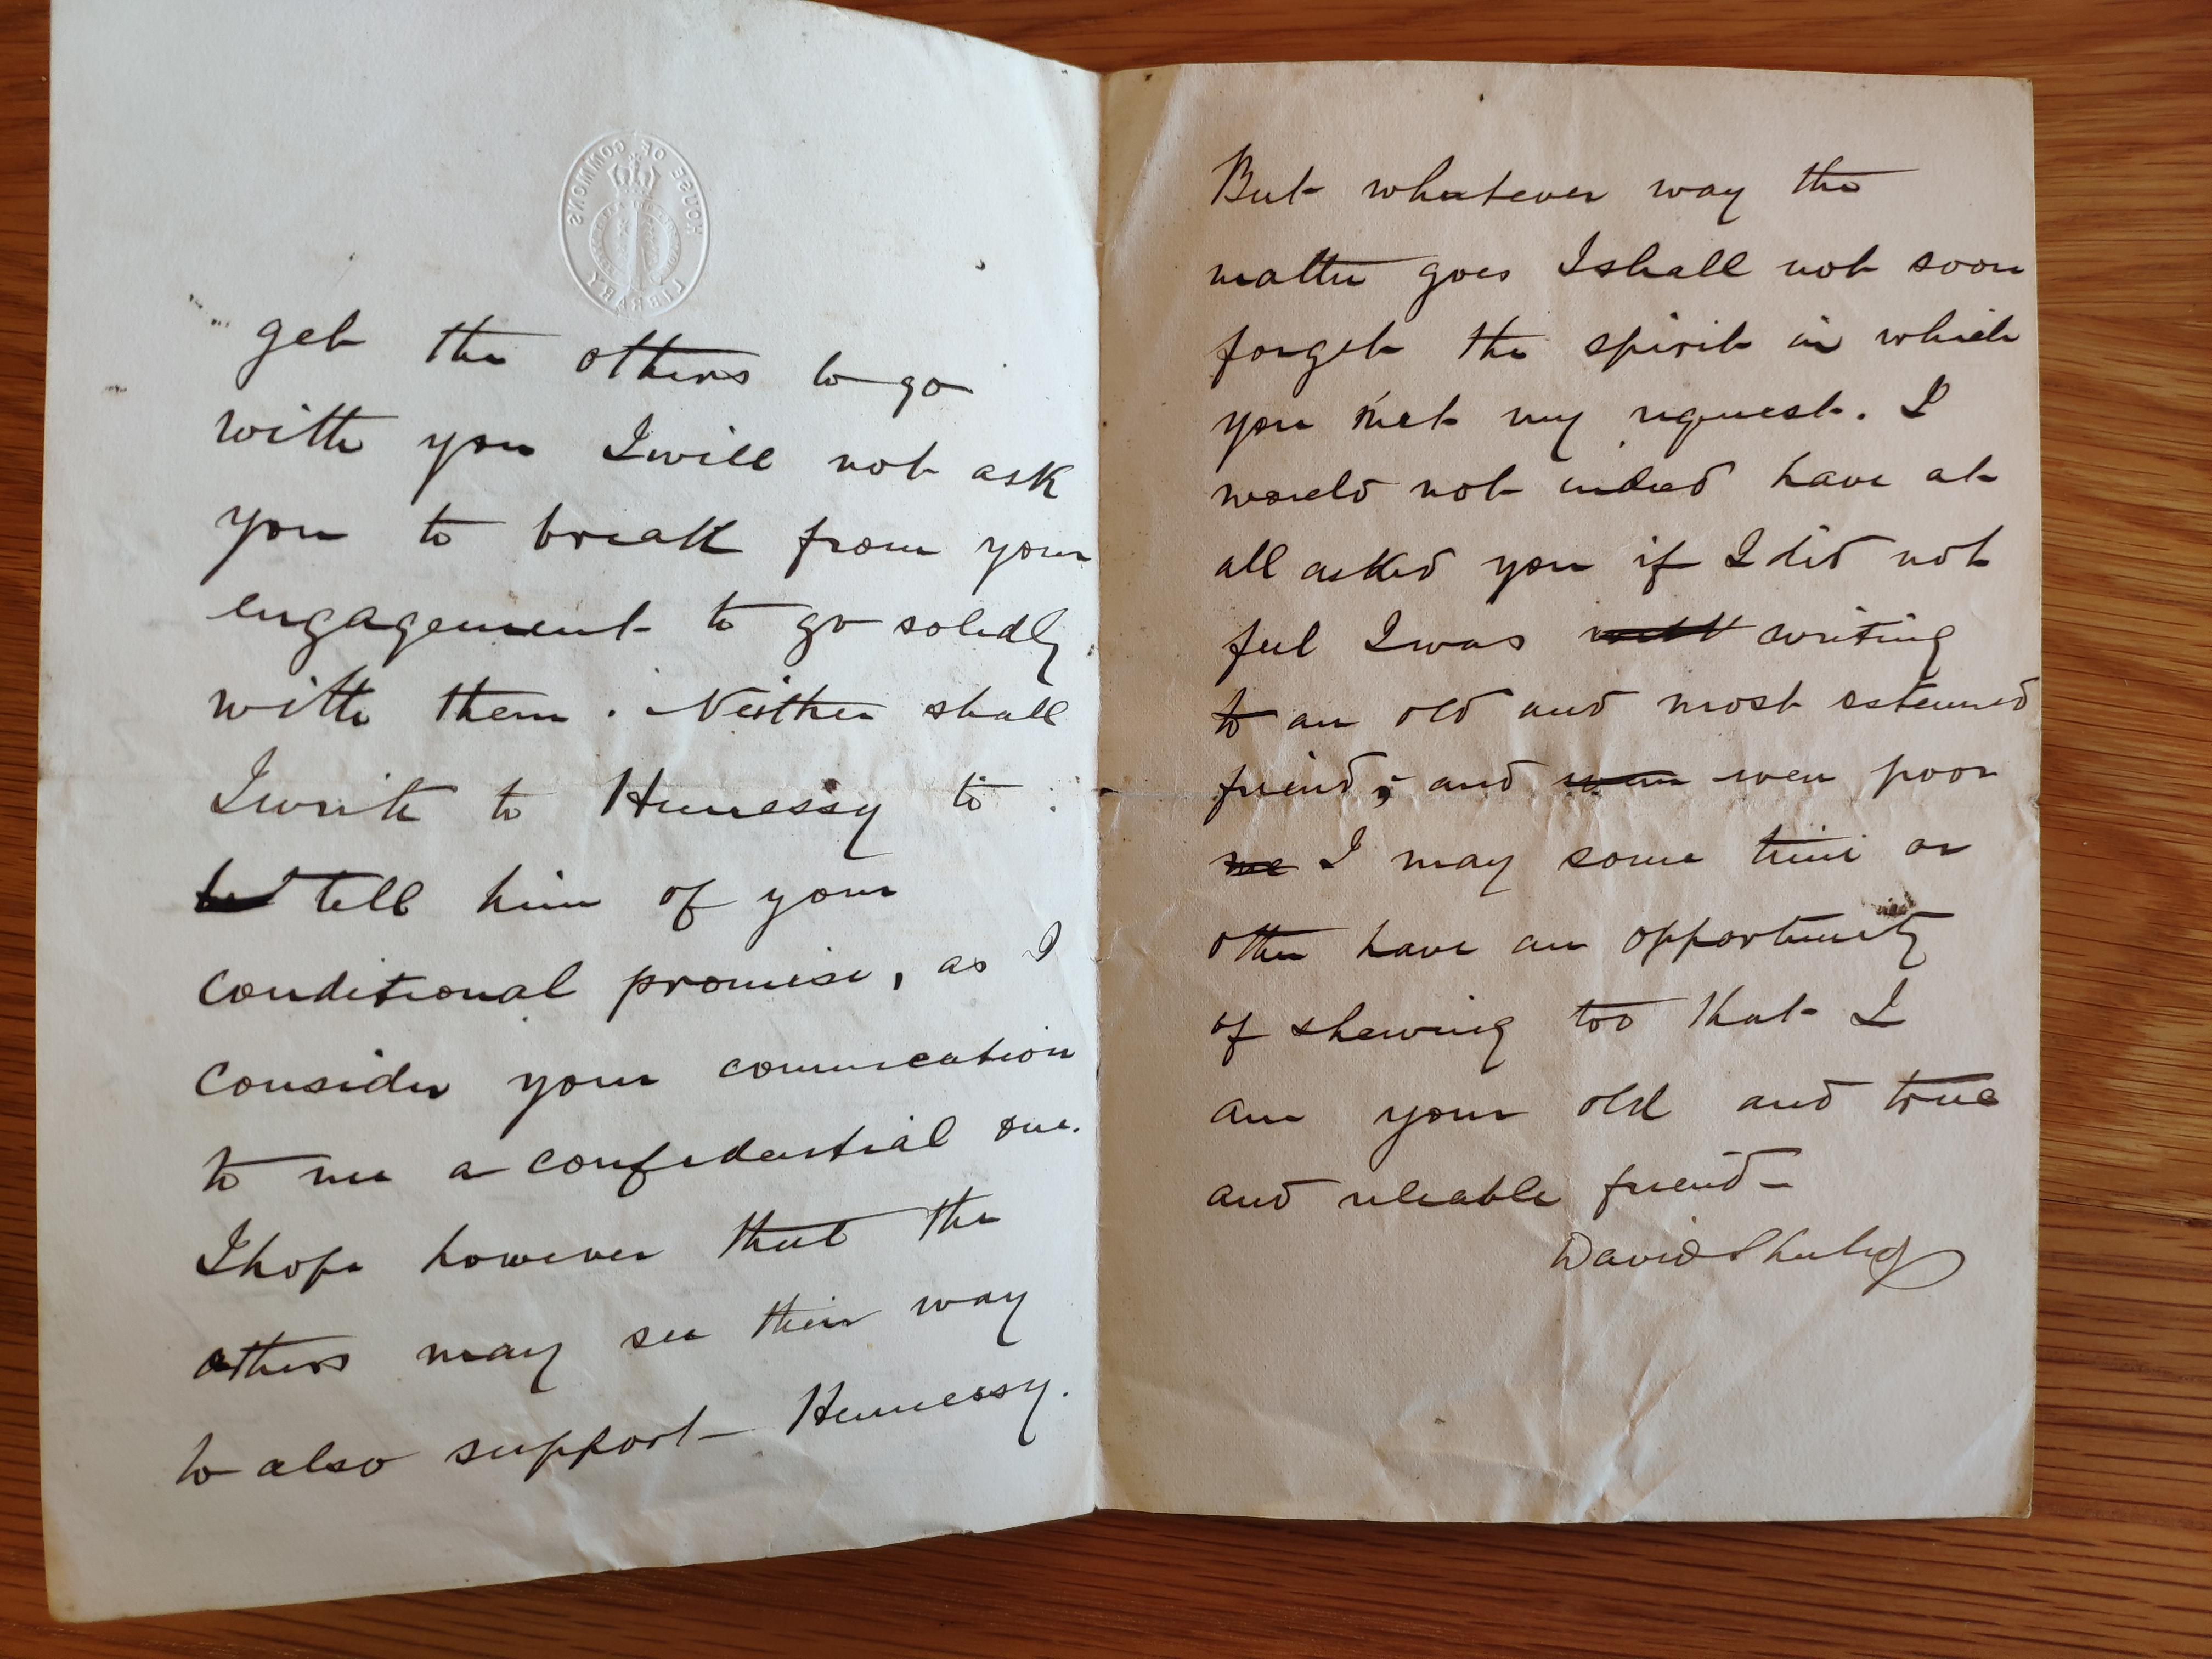 HOUSE OF COMMONS
LIBRARY
get the others to go
with you I will not ask
you to break from your
engagement to go solidly
with them. Neither shall
I write to Hennessy to
tell him of your
conditional promise, as I
consider your comunication
to me a confidential one.
I hope however that the
others may see their way
to also support Hennessy.
But whatever way the
matter goes I shall not soon
forget the spirit in which
you met my request. I
would not indeed have at
all asked you if I did not
feel I was writing
to an old and most esteemed
friend; and even poor
me I may some time or
other have an opportunity
of shewing too that I
am your old and true
and reliable friend -
David Sheehy